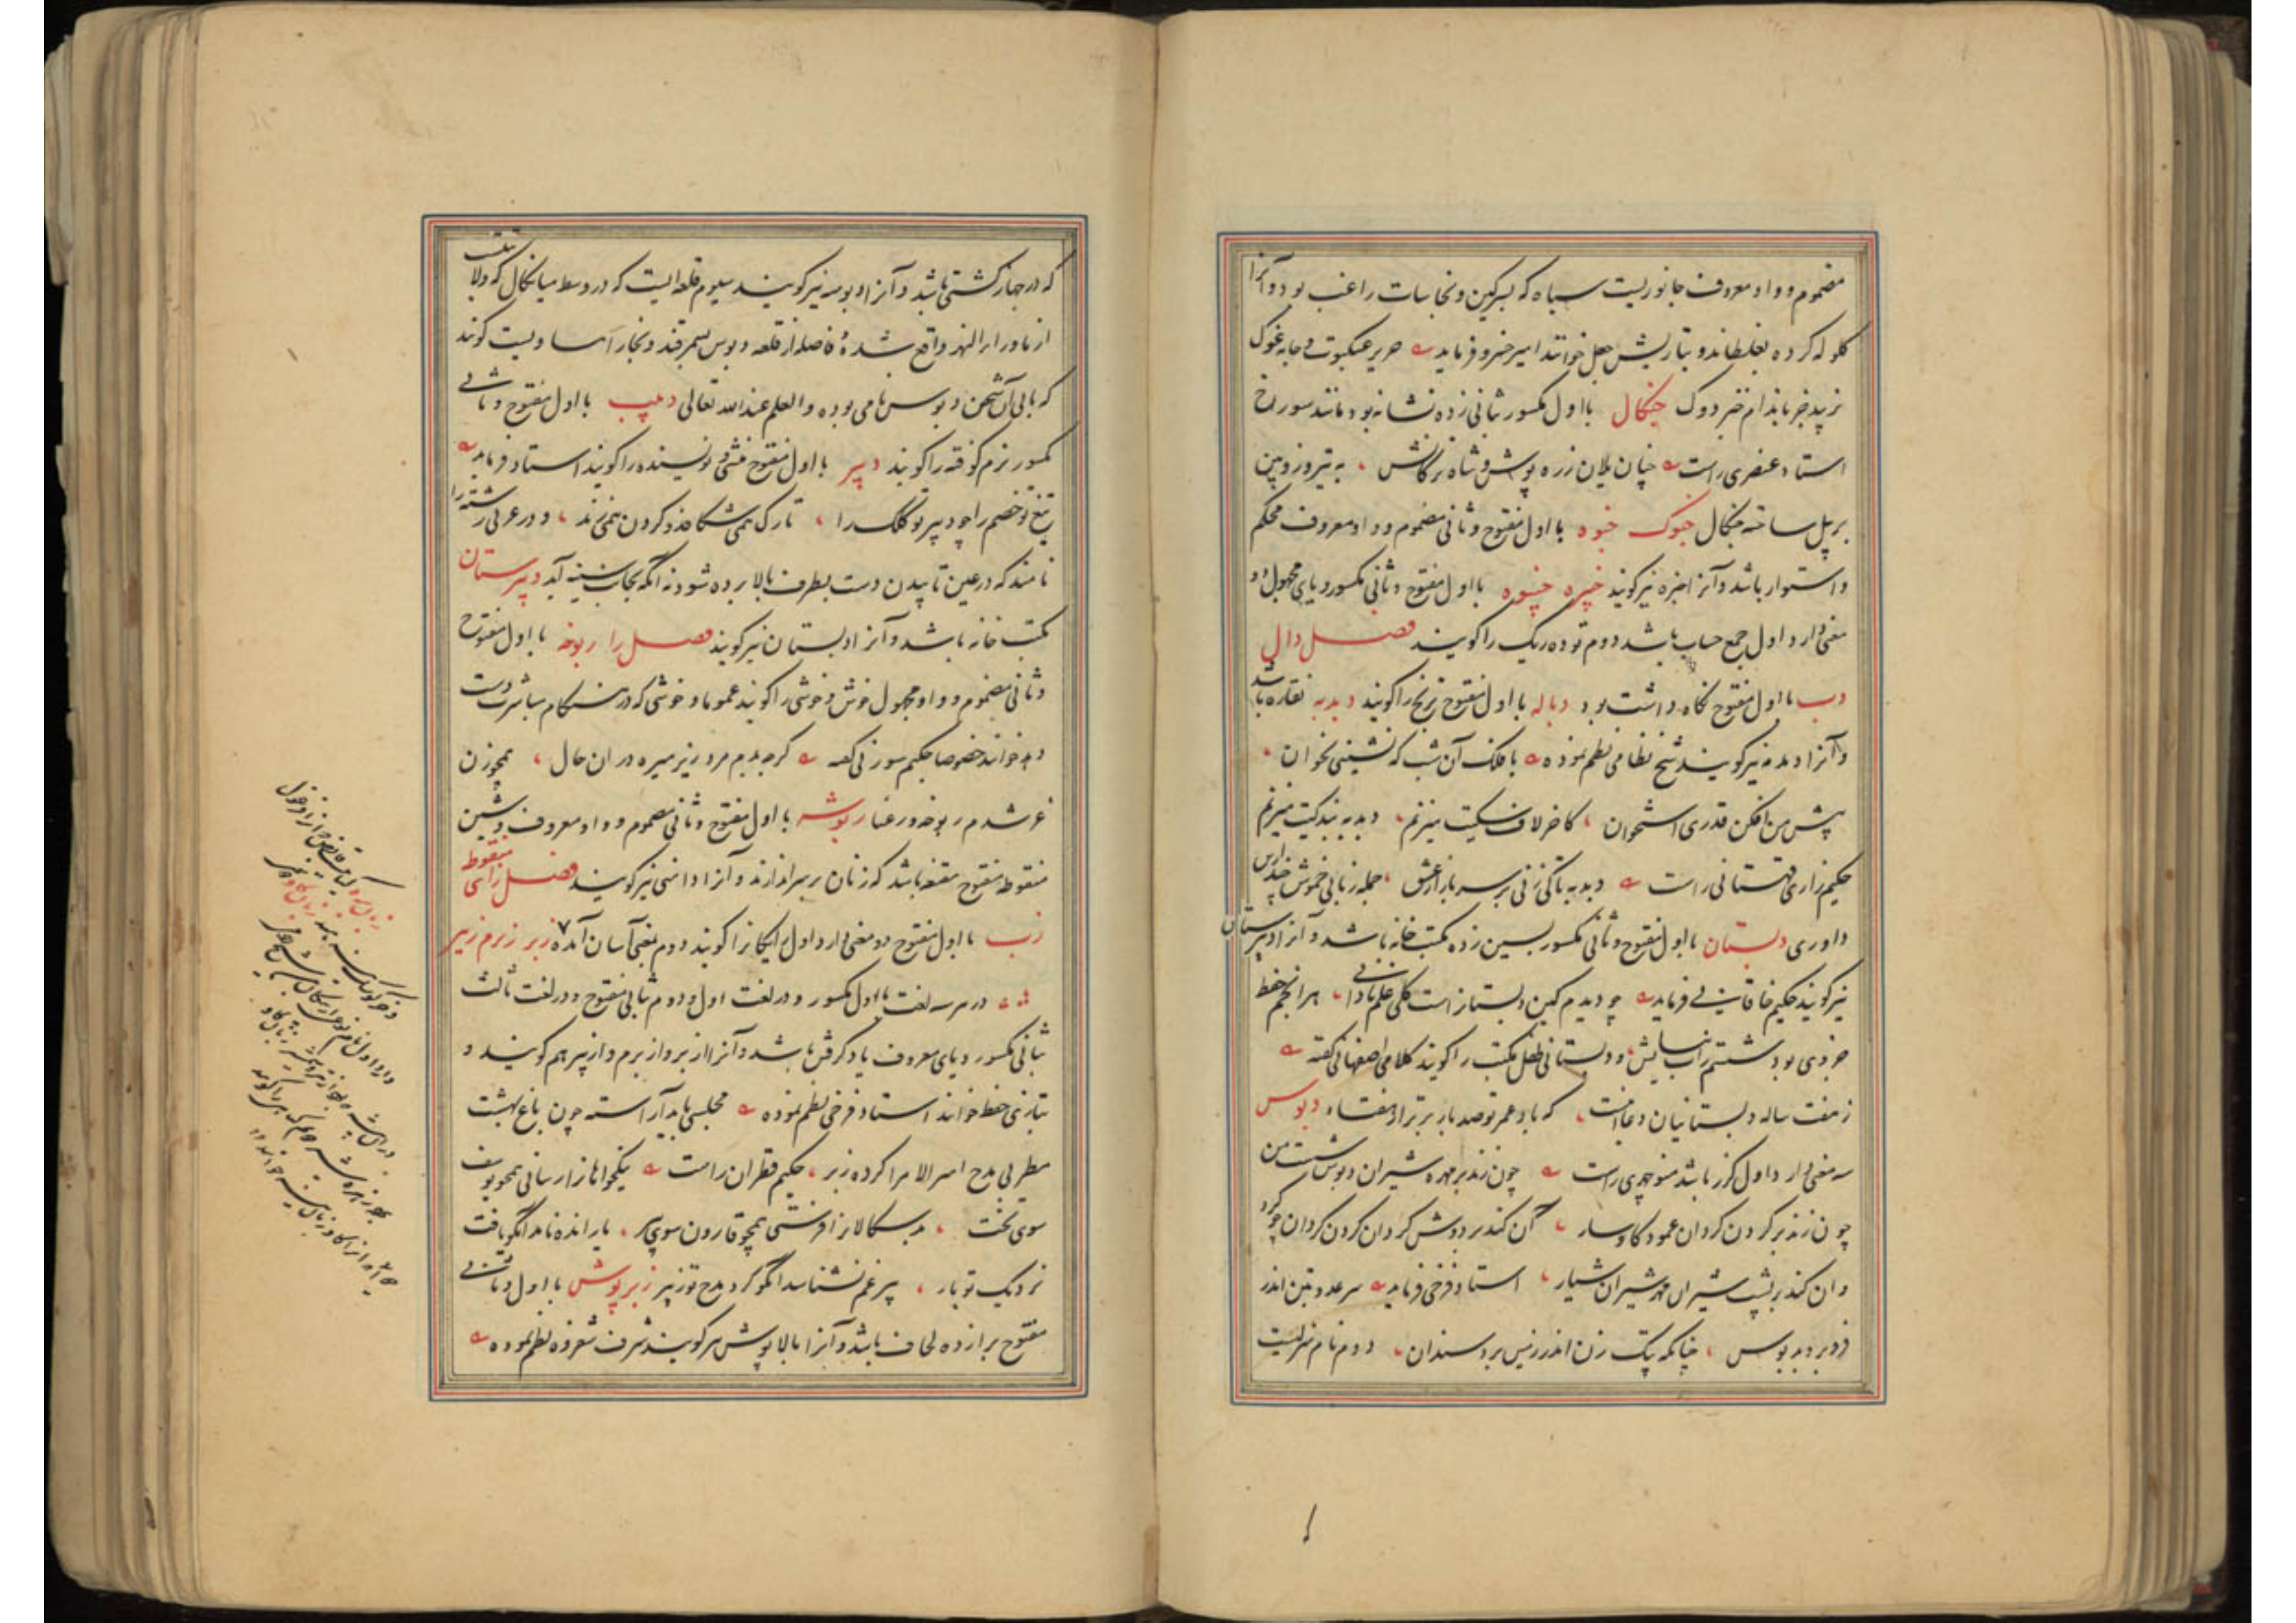 مضموم و واو معروف جانوریست سیاه که بسرکین و نجاسات راغب بود و آنرا
کلوله کرده بغلطاند و بتازیش جعل خوانند امیر خسرو فرماید حریر عنکبوت و جامه غوک
نزیبد جز باندام خبزدوک خبکال بااول مکسور بثانی زده نشانه بود مانند سوراخ
استاد عنصری راست چنان یلان زره پوش و شاه ترکانش به تیر و زوبین
بر پیل ساخته خبکال خبوک خبوه بااول مفتوح و ثانی مضموم و واو معروف محکم
و استوار باشد و آنرا خبزه نیز کویند خبیره خبیوه بااول مفتوح و ثانی مکسور و یای مجهول دو
معنی دارد اول جمع حساب باشد دوم توده ریک را کویند فصل دال
دب بااول مفتوح نکاه داشت بود دباله بااول مفتوح ترنج را کویند دبدبه نقاره باشد
و آنرا دمدمه نیز کویند شیخ نظامی نظم نموده با فلک آن شب که نشینی بخوان
پیش من افکن قدری استخوان کاخر لاف سکیت میزنم دبدبه بندکیت میزنم
حکیم نزاری قهستانی راست دبدبه پاکی زنی بر سر بازار عشق جمله زبانی خموش
داوری دبستان بااول مفتوح و ثانی مکسور بسین زده مکتب خانه باشد و آنرا دبیرستان
نیز کویند حکیم خاقانی فرماید چو دیدم کین دبستانراست کلی علم نادانی هر آنچم حفظ
جزوی بود شستم زاب نسیانش و دبستانی طفل مکتب را کویند کلامی اصفهانی کفته
ز هفت ساله دبستانیان دعا انست که باد عمر تو صد بار برتر از هفتاد دبوس
سه معنی دارد اول کرز باشد منوچهری راست چون زند بر مهره شیران دبوس شصت من
چون زند بر کردن کردان عمود کاوسار آن کند بر دوش کردان کردن کردان چو کرد
وان کند بر پشت شیران مهره شیران شیار استاد فرخی فرماید سر عدو بتن اندر
فرو برد بدبوس چنانکه پتک زن اندر زمین برد سندان دوم نام منزلیست
که در جهاز کشتی باشد و آنرا دبوسه نیز کویند سیوم قلعه ایست که در وسط میانکال که ولایتیست
از ماوراء النهر واقع شده و فاصله از قلعه دبوس بسمرقند و بخارا مساویست کویند
که بانی آن شخص دبوس نامی بوده والعلم عند الله تعالی دبیب بااول مفتوح و ثانی
مکسور نرم کوفته را کویند دبیر بااول مفتوح منشی و نویسنده را کویند استاد فرماید
تیغ تو خصم را چو دبیر تو کلک را تارک همی شکافد و کردن همی زند و در عربی رشته را
نامند که در عین تابیدن دست بطرف بالا برده شود نه آنکه بجانب سینه آید دبیرستان
مکتب خانه باشد و آنرا دبستان نیز کویند فصل را ربوخه بااول مفتوح
و ثانی مضموم و واو مجهول خوش و خوشی را کویند عموما و خوشی که در هنکام مباشرت دست
دهد خوانند خصوصا حکیم سوزنی کفته کرچه بدم مرد زیر میره در ان حال همچو زن
غر شدم ربوخه و رعنا ربوشه بااول مفتوح و ثانی مضموم و واو معروف و شین
منقوطه مفتوح مقنعه باشد که زنان بر سر اندازند و آنرا دامنی نیز کویند فصل زای منقوط
زب بااول مفتوح دو معنی دارد اول رایکانرا کویند دوم بمعنی آسان آمده زبر زبرم زبیر
در هر سه لغت بااول مکسور و در لغت اول و دوم ثانی مفتوح و در لغت ثالث
ثانی مکسور و یای معروف یاد کرفتن باشد و آنرا از بر و از برم و از بیر هم کویند و
بتازی حفظ خوانند استاد فرخی نظم نموده مجلسی باید آراسته چون باغ بهشت
مطربی مدح امیر الامرا کرده زبر حکیم قطران راست نیکخواهانرا رسانی همچو یوسف
سوی تخت بدسکالانرا فرستی همچو قارون سوی بیر باراندهنامد آنکو یافت
نزدیک تو بار بیر غم نشناسد آنکو کرد مدح تو زبیر زبرپوش بااول و ثانی
مفتوح برازده لحاف باشد و آنرا بالاپوش هم کویند شرف شفروه نظم نموده